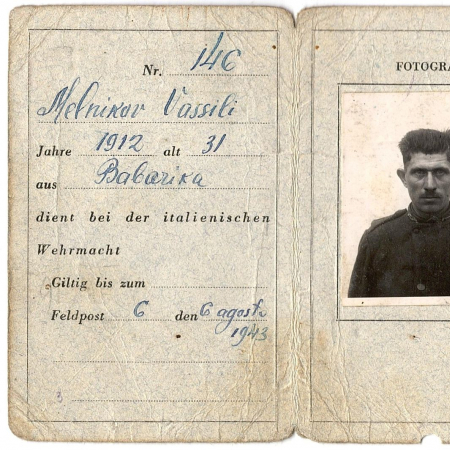 Nr. 146
Melnikov Vassili
Jahre 1912 alt 31
aus Babarika
dient bei der italienischen
Wehrmacht
Giltig bis zum
Feldpost 6 den 6 agosto
1943
3
FOTOGRA